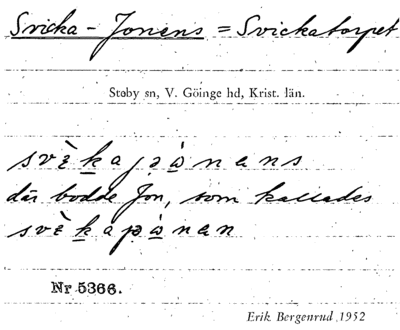 Svicka-Jonens = Svickatorpet
Stoby sn, V. Göinge hd, Krist. län.
där bodde Jon, som kallades
Nr 5366.
Erik Bergenrud 1952